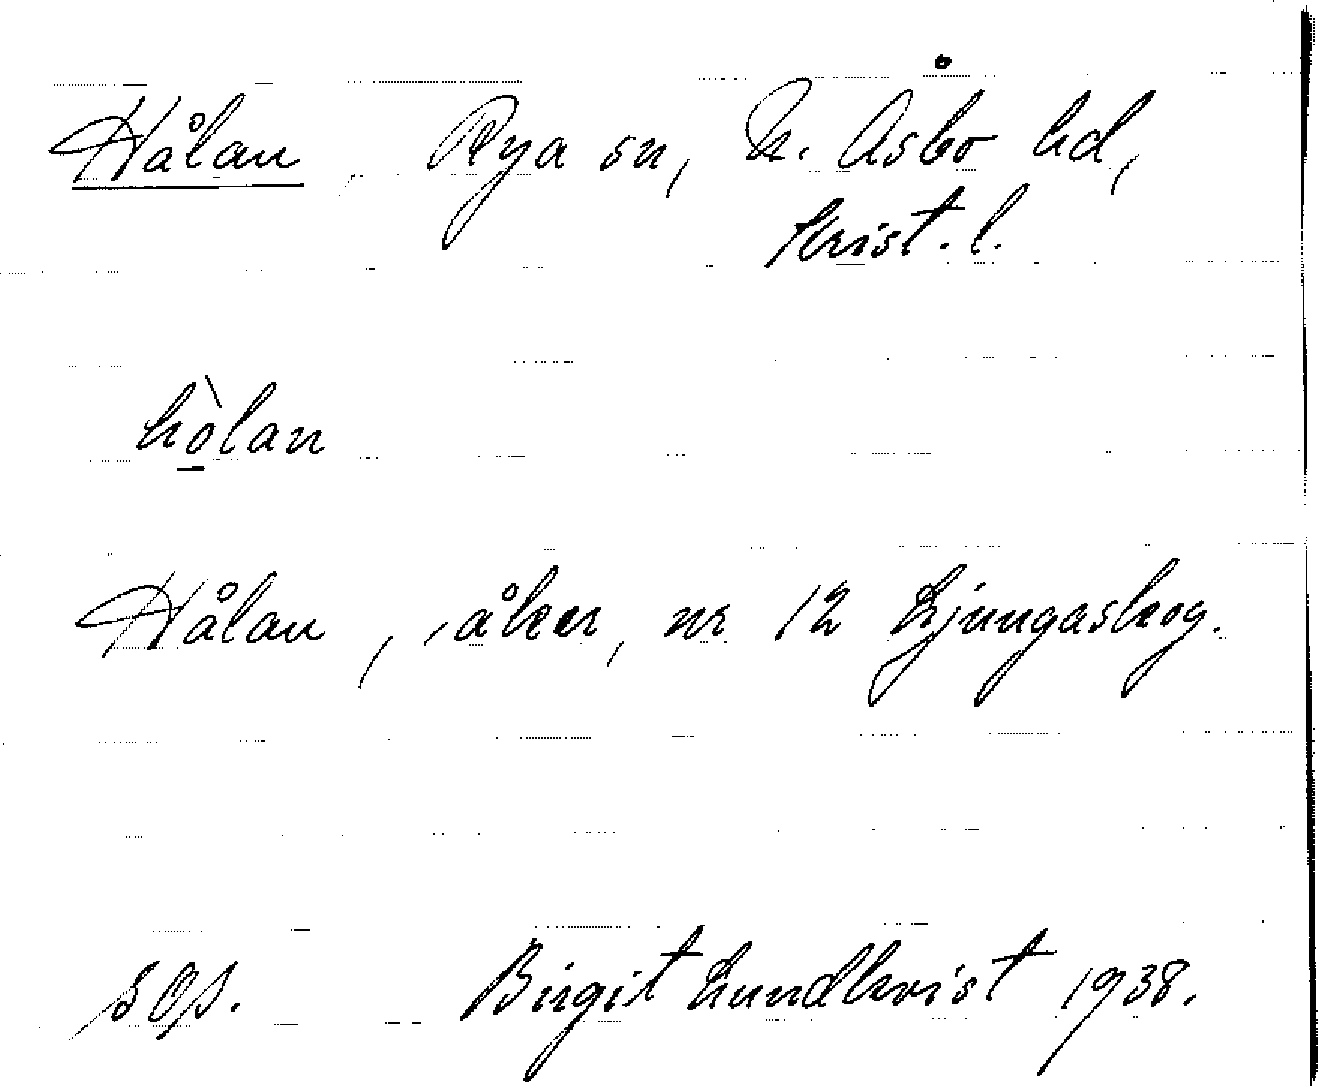 Hålan, Rya sn, N. Åsbo hd,
Krist. l.
hò̱lan
Hålan, åker, nr 12 Ljungaskog.
s Os. Birgit Lundkvist 1938.